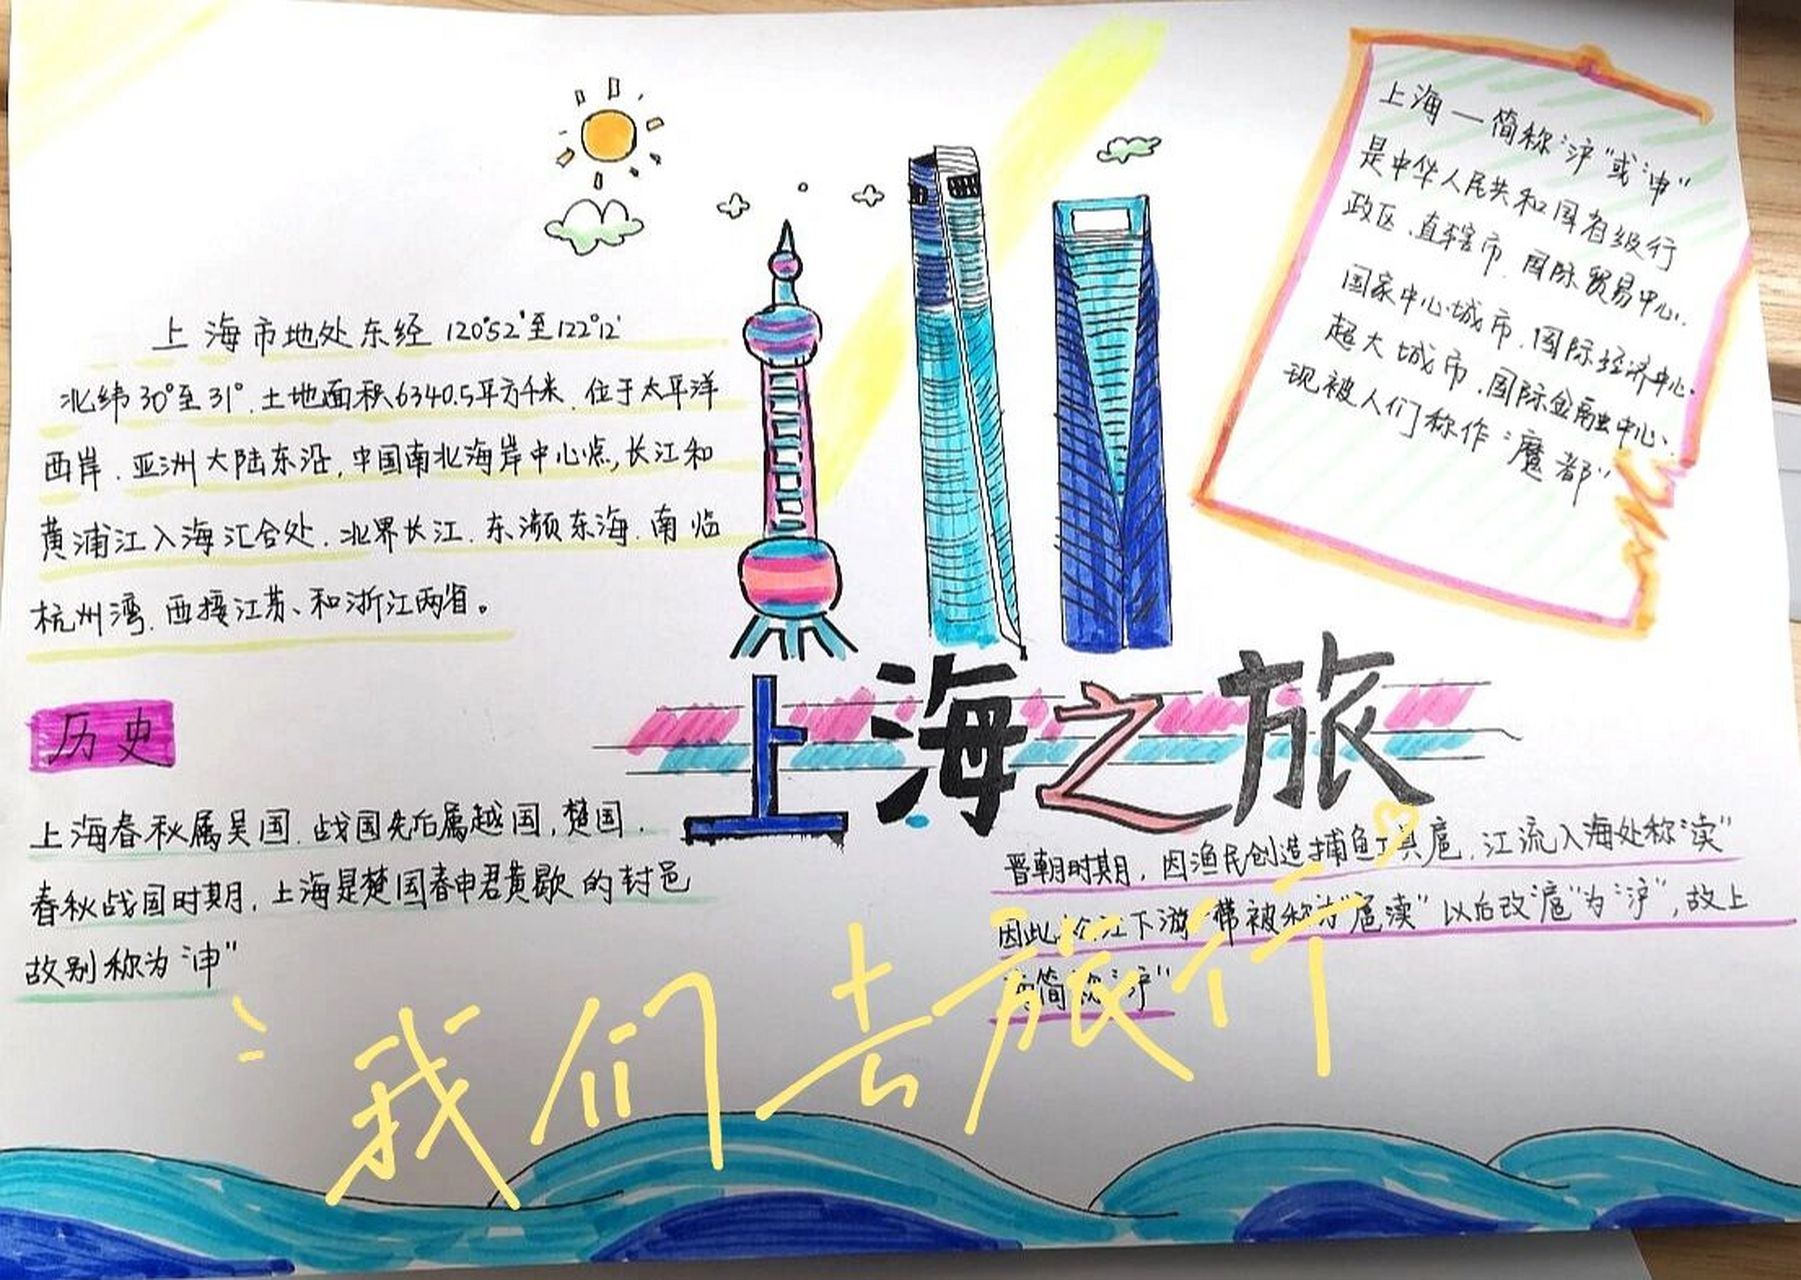 上海一简称"沪"或"申"
是中华人民共和国省级行
政区、直辖市、国际贸易中心、
国家中心城市、国际经济中心、
超大城市、国际金融中心、
现被人们称作"魔都"
上海市地处东经120°52′至122°12′
北纬30°至31°.土地面积6340.5平方千米.位于太平洋
西岸.亚洲大陆东沿,中国南北海岸中心点,长江和
黄浦江入海汇合处.北界长江.东濒东海.南临
杭州湾.西接江苏、和浙江两省。
上海之旅
历史
上海春秋属吴国.战国先后属越国,楚国.
春秋战国时期,上海是楚国春申君黄歇的封邑
故别称为"申"
晋朝时期,因渔民创造捕鱼工具扈.江流入海处称"渎"
因此松江下游一带被称为"扈渎"以后改"滬"为"沪",故上
海简称"沪"
我们去旅行